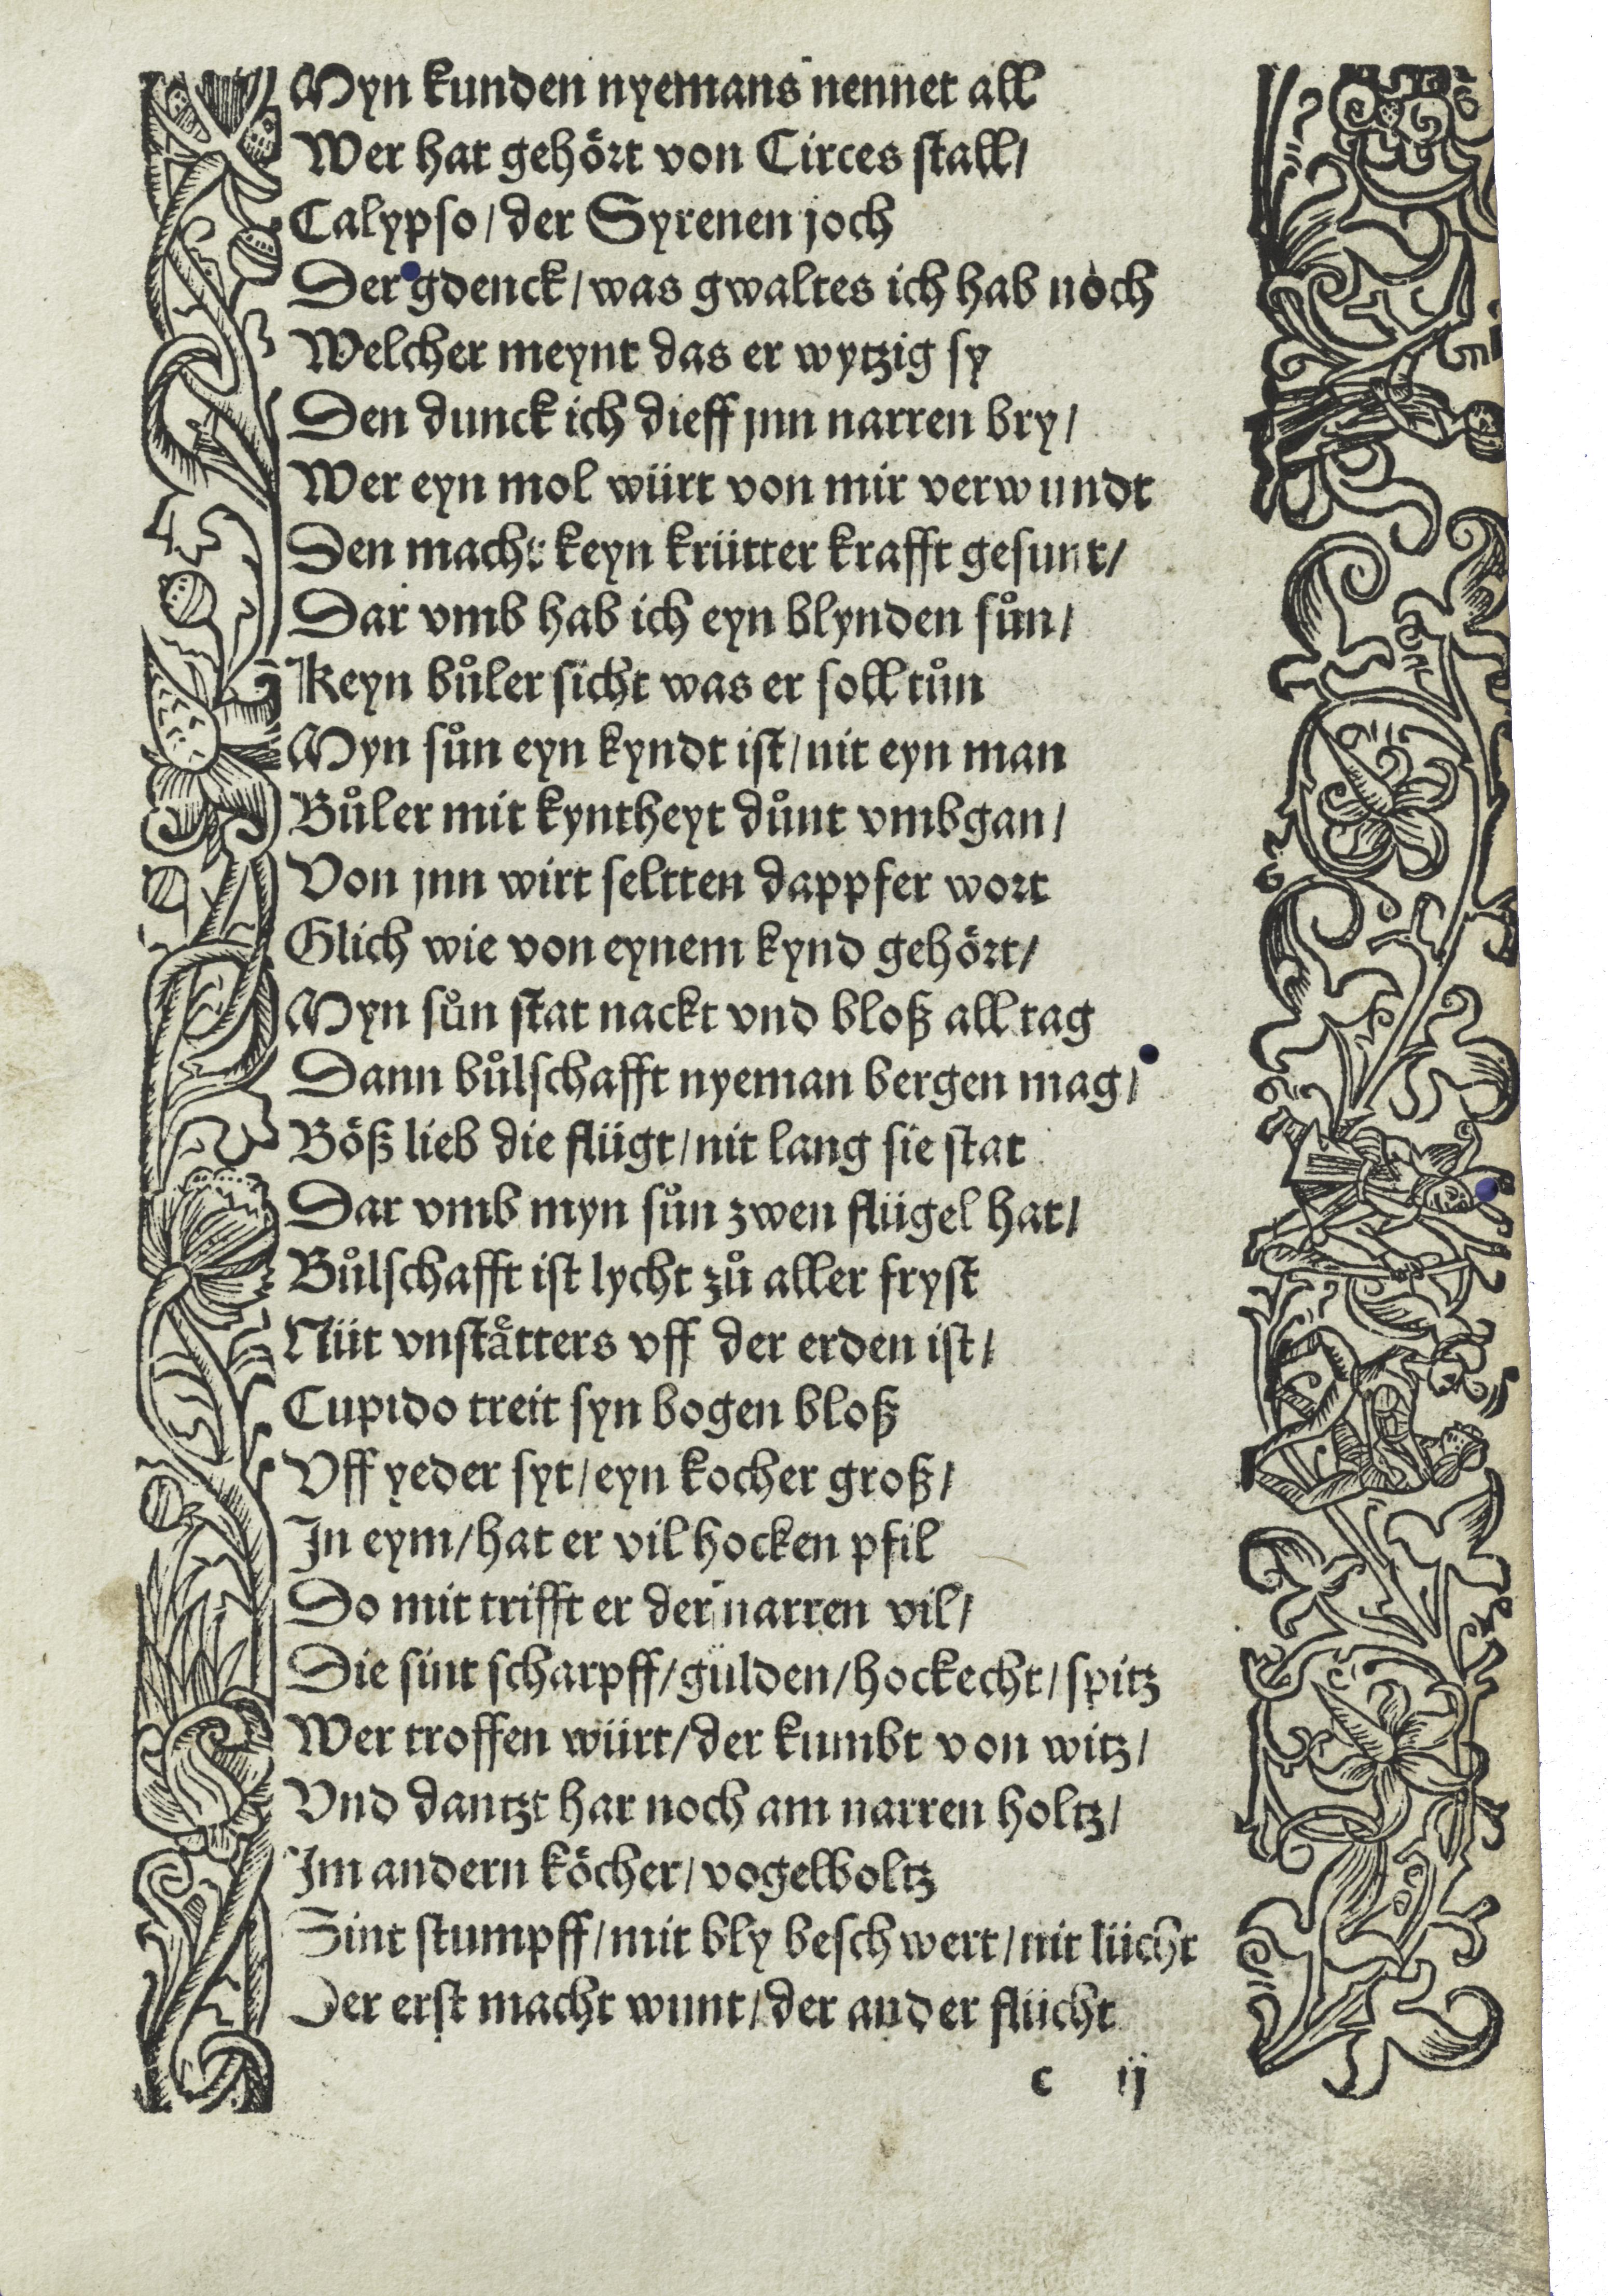 Myn kunden nyemans nennet all
Wer hat gehört von Circes stall/
Calypso/ der Syrenen joch
Der gdenck/ was gwaltes ich hab noch
Welcher meynt das er wytzig sy
Den dunck ich dieff jnn narren bry/
Wer eyn mol würt von mir verwundt
Den macht keyn krütter krafft gesunt/
Dar vmb hab ich eyn blynden suͦn/
Keyn buͦler sicht was er soll tuͦn
Myn suͦn eyn kyndt ist/ nit eyn man
Buͦler mit kyntheyt duͦnt vmbgan/
Von jnn wirt seltten dappfer wort
Glich wie von eynem kynd gehört/
Myn suͦn stat nackt vnd bloß all tag
Dann buͦlschafft nyeman bergen mag/
Böß lieb die flügt/ nit lang sie stat
Dar vmb myn suͦn zwen flügel hat/
Buͦlschafft ist lycht zuͦ aller fryst
Nüt vnstaͤtters vff der erden ist/
Cupido treit syn bogen bloß
Vff yeder syt/ eyn kocher groß/
In eym/ hat er vil hocken pfil
Do mit trifft er der narren vil/
Die sint scharpff/ gülden/ hockecht/ spitz
Wer troffen würt/ der kumbt von witz/
Vnd dantzt har noch am narren holtz/
Im andern köcher/ vogelboltz
Sint stumpff/ mit bly beschwert/ nit lücht
Der erst macht wunt/ der ander flücht
c ij